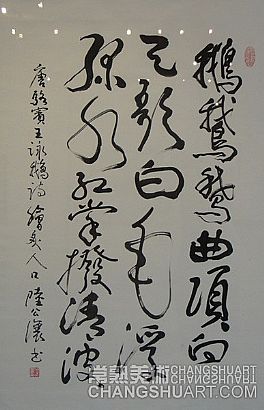 鵝鵞鵞曲項向
天歌白毛浮
綠水紅掌撥清波
唐駱賓王詠鵝詩膾炙人口 陸公讓书
常熟美術 CHANGSHUART